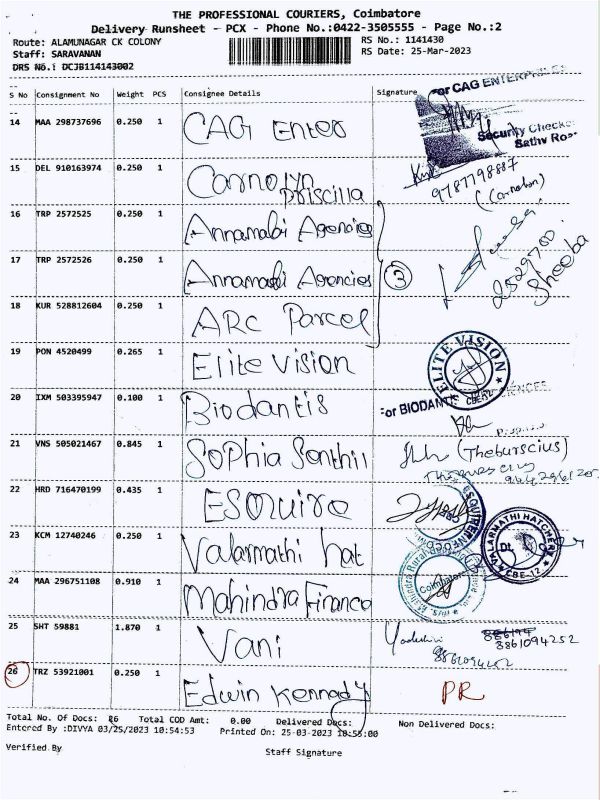 THE PROFESSIONAL COURIERS, Coimbatore
Delivery Runsheet - PCX - Phone No.:0422-3505555 - Page No.:2
Route: ALAMUNAGAR CK COLONY RS No.: 1141430
Staff: SARAVANAN RS Date: 25-Mar-2023
DRS No.: DCJB114143002
S No Consignment No Weight PCS Consignee Details Signature
For CAG ENTERPRISES
14 MAA 298737696 0.250 1 CAG Enter
Security Check
Sathy Roa
15 DEL 910163974 0.250 1 Carnolyn
Priscilla
9787798887
16 TRP 2572525 0.250 1 Annamabi Agencies
17 TRP 2572526 0.250 1 Annamabi Agencies 3
2529700
Sheeba
18 KUR 528812604 0.250 1 ARC Parcel
19 PON 4520499 0.265 1 Elite Vision
ELITE VISION
20 IXM 503395947 0.100 1 Biodantis
For BIODANTIS
21 VNS 505021467 0.845 1 Sophia Senthil
(Theburscius)
22 HRD 716470199 0.435 1 ESQuire
23 KCM 12740246 0.250 1 Valarmathi hat
VALARMATHI HATCHERY
CBE-12
24 MAA 296751108 0.910 1 Mahindra Finance
Coimbatore
25 SHT 59881 1.870 1 Vani
8861094252
26 TRZ 53921001 0.250 1 Edwin Kennady PR
Total No. Of Docs: 26 Total COD Amt: 0.00 Delivered Docs: Non Delivered Docs:
Entered By :DIVYA 03/25/2023 10:54:53 Printed On: 25-03-2023 10:55:00
Verified By Staff Signature